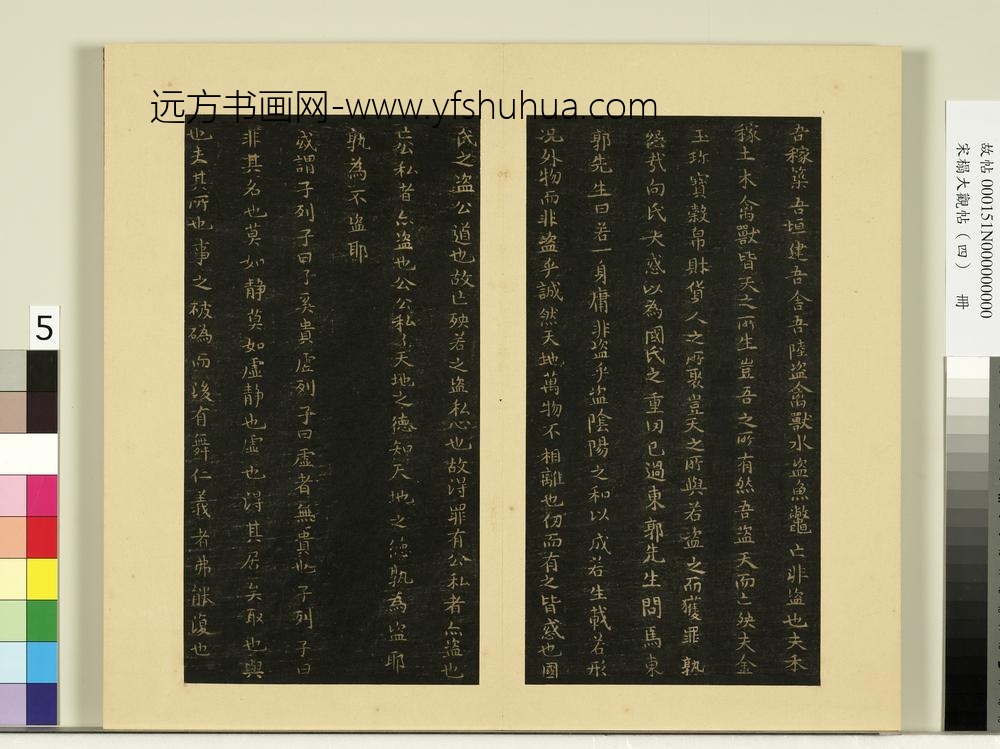 远方书画网-www.yfshuhua.com
吾稼築吾垣建吾舍吾陸盜禽獸水盜魚鼈亡非盜也夫禾
稼土木禽獸皆天之所生豈吾之所有然吾盜天而亡殃夫金
玉珎寶穀帛財貨人之所聚豈天之所與若盜之而獲罪孰
怨哉向氏大惑以為國氏之重因已過東郭先生問焉東
郭先生曰若一身庸非盜乎盜陰陽之和以成若生載若形
況外物而非盜乎誠然天地萬物不相離也仞而有之皆惑也國
氏之盜公道也故亡殃若之盜私心也故得罪有公私者亦盜也
亡公私者亦盜也公公私私天地之德知天地之德孰為盜耶
孰為不盜耶
或謂子列子曰子奚貴虛列子曰虛者無貴也子列子曰
非其名也莫如靜莫如虛靜也虛也得其居矣取也與
也失其所也事之破碼而後有舞仁義者弗能復也
故帖000151N000000000
宋榻大觀帖（四） 冊
5